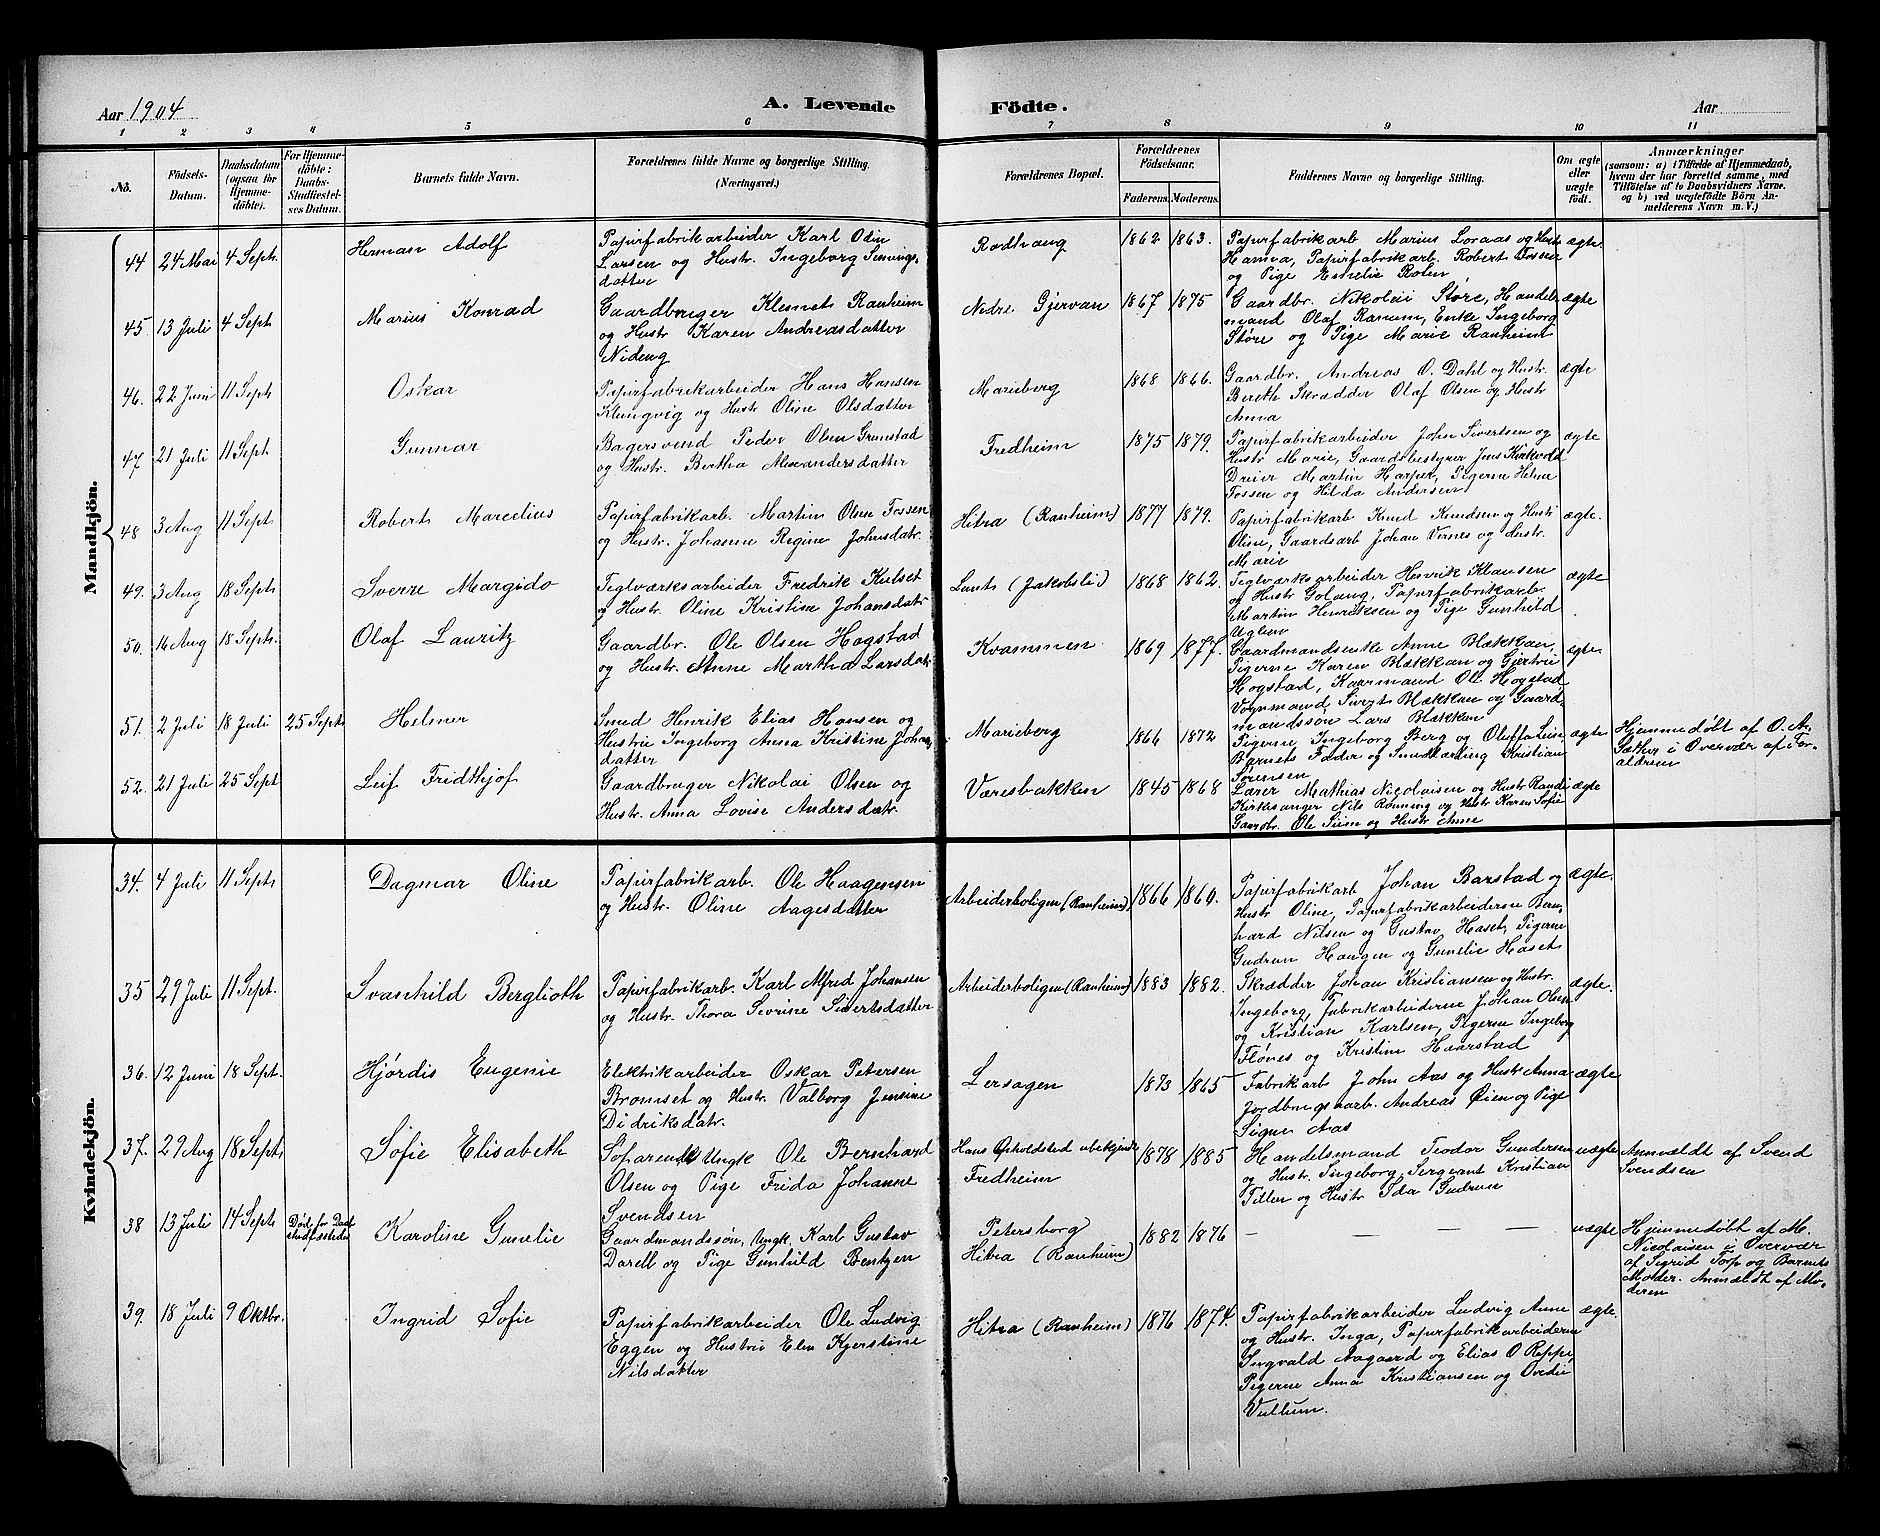 Aar 1904
A. Levende Födte.
Aar
1 2 3 4 5 6 7 8 9 10 11
No.
Fødsels-Datum.
Daabsdatum (ogsaa for Hjemme-døbte).
For Hjemme-døbte: Daabs-Stadfæstel-ses Datum.
Barnets fulde Navn.
Forældrenes fulde Navne og borgerlige Stilling.
(Næringsvei.)
Forældrenes Bopæl.
Forældrenes Födselsaar.
Faderens. Moderens.
Faddernes Navne og borgerlige Stilling.
Om ægte eller uægte født.
Anmærkninger
(saasom: a) i Tilfælde af Hjemmedaab,
hvem der har forrettet samme, med
Tilföielse af to Daabsvidners Navne.
og b) ved uægtefödte Börn An-
melderens Navn m. V.)
Mandkjön.
44 24 Mai 4 Sept. Herman Adolf
Papirfabrikarbeider Karl Odin
Larsen og Hustr. Ingeborg
datter
Rødhaug 1862 1863.
Papirfabrikarb Marius Loraas og Hustr
Hanna, Papirfabrikarb. Robert Fossen
og Pige Emelie Rolen
ægte.
45. 13 Juli 4 Sept Marius Konrad
Gaardbruger Klemet Ranheim
og Hustr Karen Andreasdatter
Nideng
Nedre Gjervan 1867 1875
Gaardbr. Nikolai Støre, Handels
mand Olaf Ranum, Enke Ingeborg
Støre og Pige Marie Ranheim
ægte
46. 22 Juni 11 Sept Oskar
Papirfabrikarbeider Hans Hansen
Klungvig og Hustr Oline Olsdatter
Marieberg 1868 1866.
Gaardbr. Andreas O. Dahl og Hustr.
Bereth Skrædder Olaf Olsen og Hustr
Anna
ægte
47 21 Juli 11 Sept Gunnar
Bagersvend Peder Olsen Grønstad
og Hustr. Bertha Alexandersdatter
Fredheim 1875 1879.
Papirfabrikarbeider John Sivertsen og
Hustr Marie, Gaardsbestyrer Jens Kirkvold
Dreier Martin Harper, Pigerne Helene
Fossen og Hilda Andersen
ægte
48 3 Aug 11 Sept Robert Marelius
Papirfabrikarb. Martin Olsen Fossen
og Hustr. Johanne Regine Johnsdatr.
Hitra (Ranheim) 1877 1879.
Papirfabrikarb Knud Knudsen og Hustr
Oline, Gaardsarb Johan Vernes og Hustr.
Marie
ægte.
49. 3 Aug 18 Sept Sverre Margido
Teglværksarbeider Fredrik Kulset
og Hustr. Oline Kristine Johansdatr
Lunts (Jakobsli) 1868 1862.
Teglværksarbeider Henrik Klausen
og Hustr Golaug, Papirfabrikarb.
Martin Henriksen og Pige Gunhild
Uglem
ægte
50. 16 Aug 18 Sept. Olaf Lauritz
Gaardbr. Ole Olsen Hogstad
og Hustr. Anne Martha Larsdatr
Kvammen 1869 1877.
Gaardmandsenke Anne Blækkan,
Pigerne Karen Blækkan og Gjertru
Hogstad, Kaarmand Ole Hogstad
Vognmand Blækkan og Gaard
mandssøn Lars Blækkan
ægte
51. 2 Juli 18 Juli 25 Sept Helmer
Smed Henrik Elias Hansen og
Hustru Ingeborg Anna Kristine Johan
datter
Marieberg 1866 1872
Pigerne Ingeborg Berg og
Barnets Fader og Smedlærling Kristian
Sørensen
ægte
Hjemmedøbt af O. A.
Sæther i Overvær af For-
ældrene
52. 21 Juli 25 Sept Leif Fridthjof
Gaardbruger Nikolai Olsen og
Hustr. Anna Lovise Andersdatr.
Væresbakken 1845 1868
Lærer Mathias Nicolaisen og Hustr Randi
Kirkesanger Nils Rønning og Hustr Karen Sofie
Gaardbr. Ole Siem og Hustr Anne
ægte
Kvindekjön.
34. 4 Juli 11 Sept Dagmar Oline
Papirfabrikarb. Ole Haagensen
og Hustr. Oline Aagesdatter
Arbeiderboligen (Ranheim) 1866 1869.
Papirfabrikarb Johan Barstad og
Hustr Oline, Papirfabrikarbeiderne Bern
hard Nilsen og Gustav Haset, Pigerne
Gudrun Haugen og Gunelie Haset
ægte.
35 29 Juli 11 Sept. Svanhild Berglioth
Papirfabrikarb. Karl Alfred Johansen
og Hustr. Thora Sivrine Sivertsdatter
Arbeiderboligen (Ranheim) 1883 1882.
Skrædder Johan Kristiansen og Hustr.
Ingeborg, Fabrikarbeiderne Johan Olsen
og Kristian Karlsen, Pigerne Ingeborg
Fløves og Kristine Haarstad
ægte.
36. 12 Juni 18 Sept. Hjørdis Eugenie
Elektrikarbeider Oskar Petersen
Bromset og Hustr. Valborg Jensine
Didriksdatr.
Lersagen 1873 1865
Fabrikarb John Aas og Hustr Anna
Jordbrugsarb. Andreas Øien og Pige
Signe Aas
ægte
37. 29 Aug 18 Sept. Sofie Elisabeth
Søfarende Ungk Ole Bernhard
Olsen og Pige Frida Johanne
Svendsen
Hans Opholdsted ubekjendt
Fredheim
1878 1885
Handelsmand Teodor Gundersen
og Hustr. Ingeborg, Sergeant Kristian
Tiller og Hustr Ida Gudrun
uægte
Anmældt af Svend
Svendsen
38 13 Juli 14 Sept Død før Daabs
stadfæstelse Karoline Gunelie
Gaardmandssøn, Ungk. Karl Gustav
Dørell og Pige Gunhild Bentzen
Petersborg
Hitra (Ranheim)
1882 1876
— — — —
uægte
Hjemmedøbt af M.
Nicolaisen i Overvær
af Sigrid Torp og Barnets
Moder. Anmældt af Mo-
deren
39. 18 Juli 9 Oktbr. Ingrid Sofie
Papirfabrikarbeider Ole Ludvig
Eggen og Hustru Elen Kjerstine
Nilsdatter
Hitra (Ranheim) 1876 1874.
Papirfabrikarbeider Ludvig Anne
og Hustr. Inga, Papirfabrikarbeiderne
Ingvald Aagaard og Elias O Rappe,
Pigerne Anna Kristiansen og Ovedie
Vullum.
ægte.